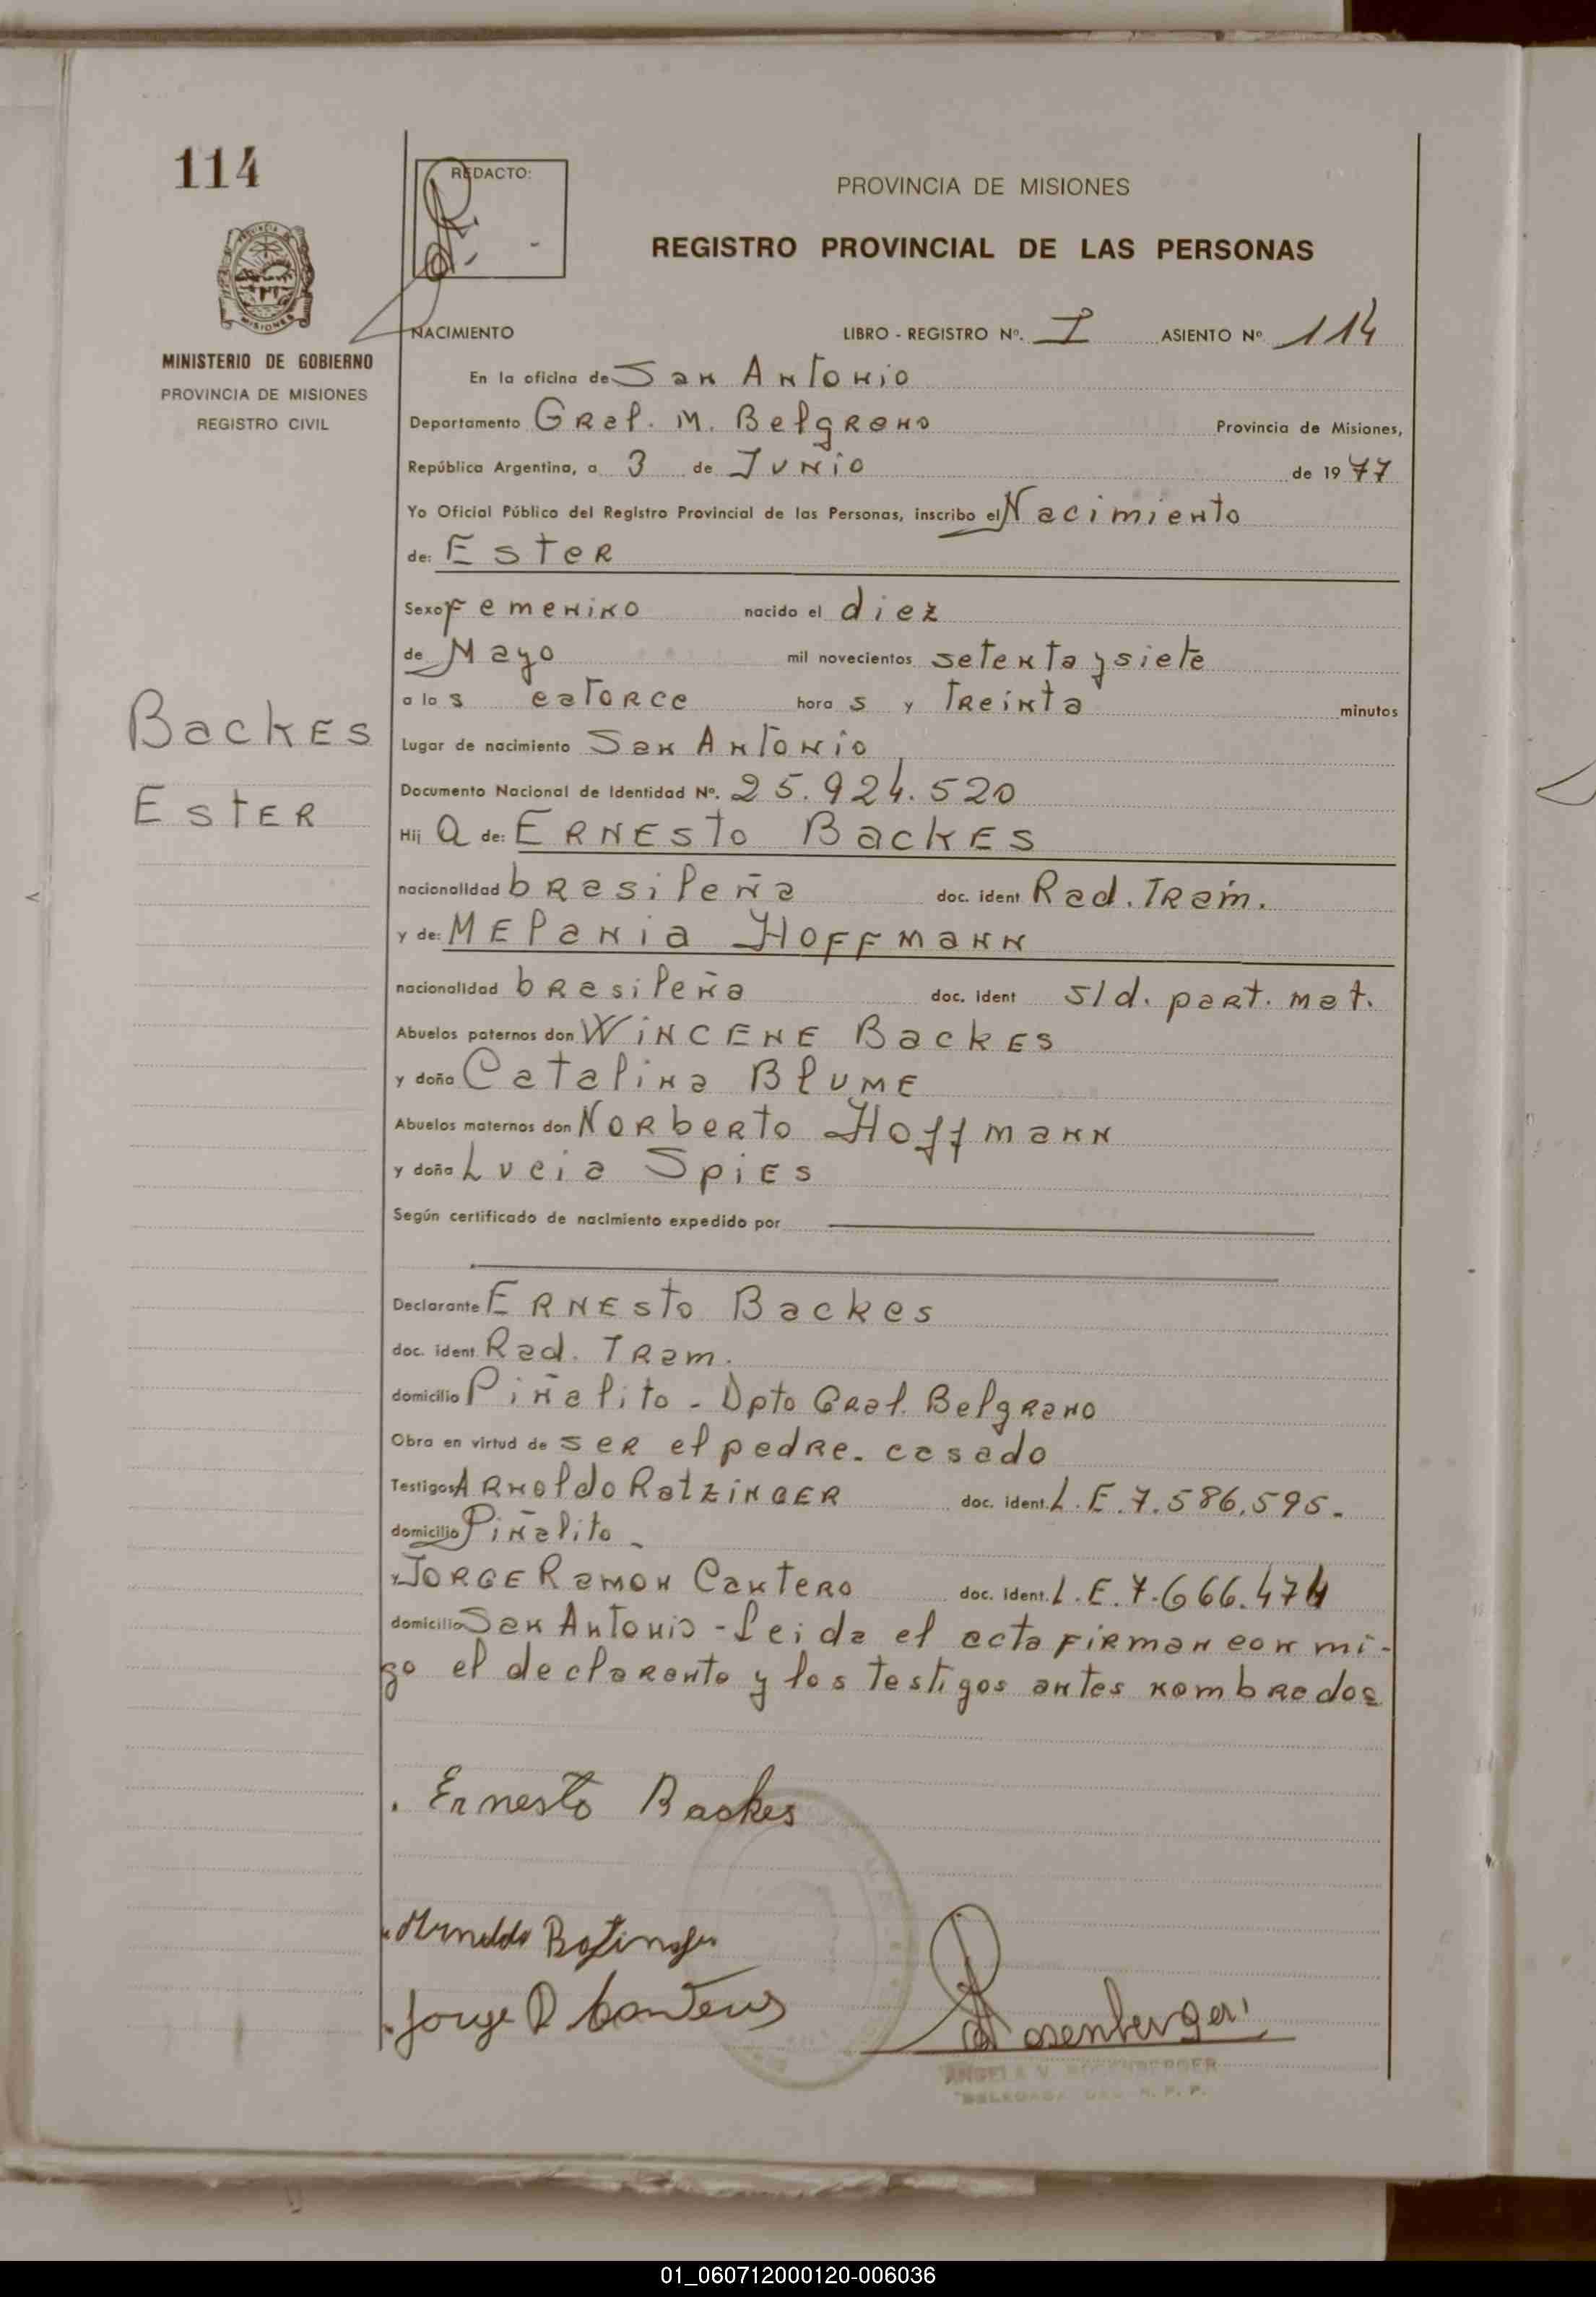 114
REDACTO:
PROVINCIA DE MISIONES
REGISTRO PROVINCIAL DE LAS PERSONAS
PROVINCIA DE
MISIONES
MINISTERIO DE GOBIERNO
PROVINCIA DE MISIONES
REGISTRO CIVIL
NACIMIENTO LIBRO - REGISTRO Nº. I ASIENTO Nº 114
En la oficina de San Antonio
Departamento Gral. M. Belgrano Provincia de Misiones,
República Argentina, a 3 de Junio de 1977
Yo Oficial Público del Registro Provincial de las Personas, inscribo el Nacimiento
de: Ester
Sexo Femenino nacido el diez
de Mayo mil novecientos setenta y siete
a las catorce horas y Treinta minutos
Backes
Ester
Lugar de nacimiento San Antonio
Documento Nacional de Identidad Nº. 25.924.520
Hija de: Ernesto Backes
nacionalidad brasileña doc. ident Rad. Tram.
y de: Melania Hoffmann
nacionalidad brasileña doc. ident s/d. part. mat.
Abuelos paternos don Wincene Backes
y doña Catalina Blume
Abuelos maternos don Norberto Hoffmann
y doña Lucia Spies
Según certificado de nacimiento expedido por
Declarante Ernesto Backes
doc. ident. Rad. Tram.
domicilio Piñalito - Dpto Gral. Belgrano
Obra en virtud de ser el padre. casado
Testigos Arnoldo Ratzinger doc. ident. L.E. 7.586.595.
domicilio Piñalito -
y Jorge Ramon Cantero doc. ident. L.E. 7.666.474
domicilio San Antonio - Leida el acta firman con mi-
go el declarante y los testigos antes nombrados
Ernesto Backes
Jorge R Cantero
Rosenberger
ANGELA V. ROSENBERGER
01_060712000120-006036